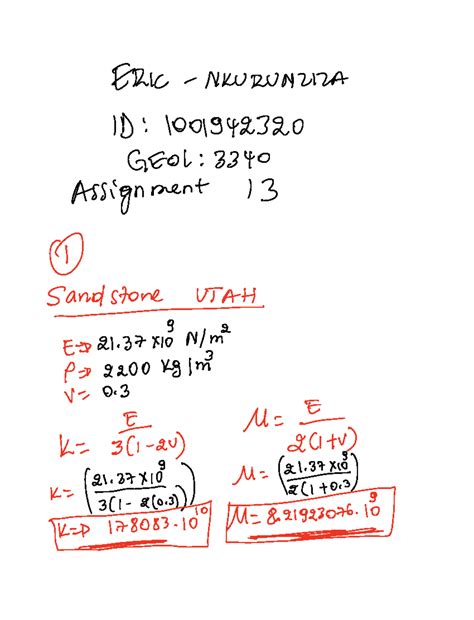 ERIC - NKURUNZIZA
ID: 1001942320
GEOL: 3340
Assignment 13
①
Sandstone UTAH
E⇒ 21.37 x10⁹ N/m²
ρ⇒ 2200 Kg/m³
V= 0.3
K= E / 3(1-2V)
M= E / 2(1+V)
K= (21.37 x10⁹ / 3(1-2(0.3)))
M= (21.37 x10⁹ / 2(1+0.3)
K=⇒ 178083.10¹⁰
M= 8.21923076.10⁹